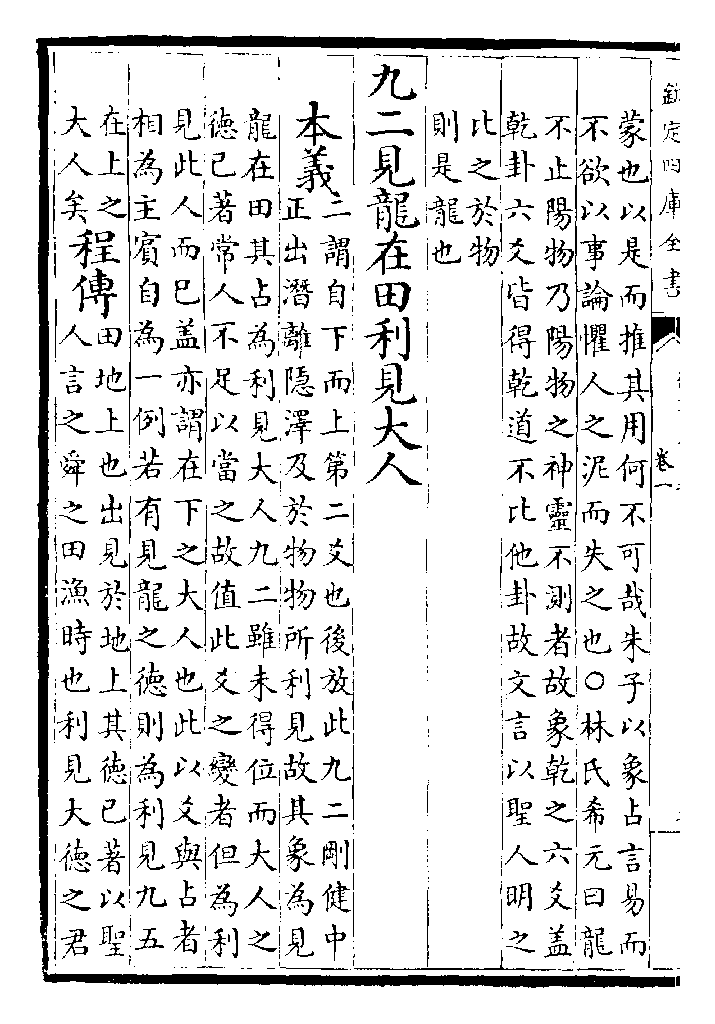 欽定四庫全書
卷一
蒙也以是而推其用何不可哉朱子以象占言易而
不欲以事論懼人之泥而失之也○林氏希元曰龍
不止陽物乃陽物之神靈不測者故象乾之六爻盖
乾卦六爻皆得乾道不比他卦故文言以聖人明之
比之於物
則是龍也
九二見龍在田利見大人
本義
二謂自下而上第二爻也後放此九二剛健中
正出潛離隱澤及於物物所利見故其象為見
龍在田其占為利見大人九二雖未得位而大人之
德已著常人不足以當之故值此爻之變者但為利
見此人而已盖亦謂在下之大人也此以爻與占者
相為主賓自為一例若有見龍之德則為利見九五
在上之
大人矣
程傳
田地上也出見於地上其德已著以聖
人言之舜之田漁時也利見大德之君